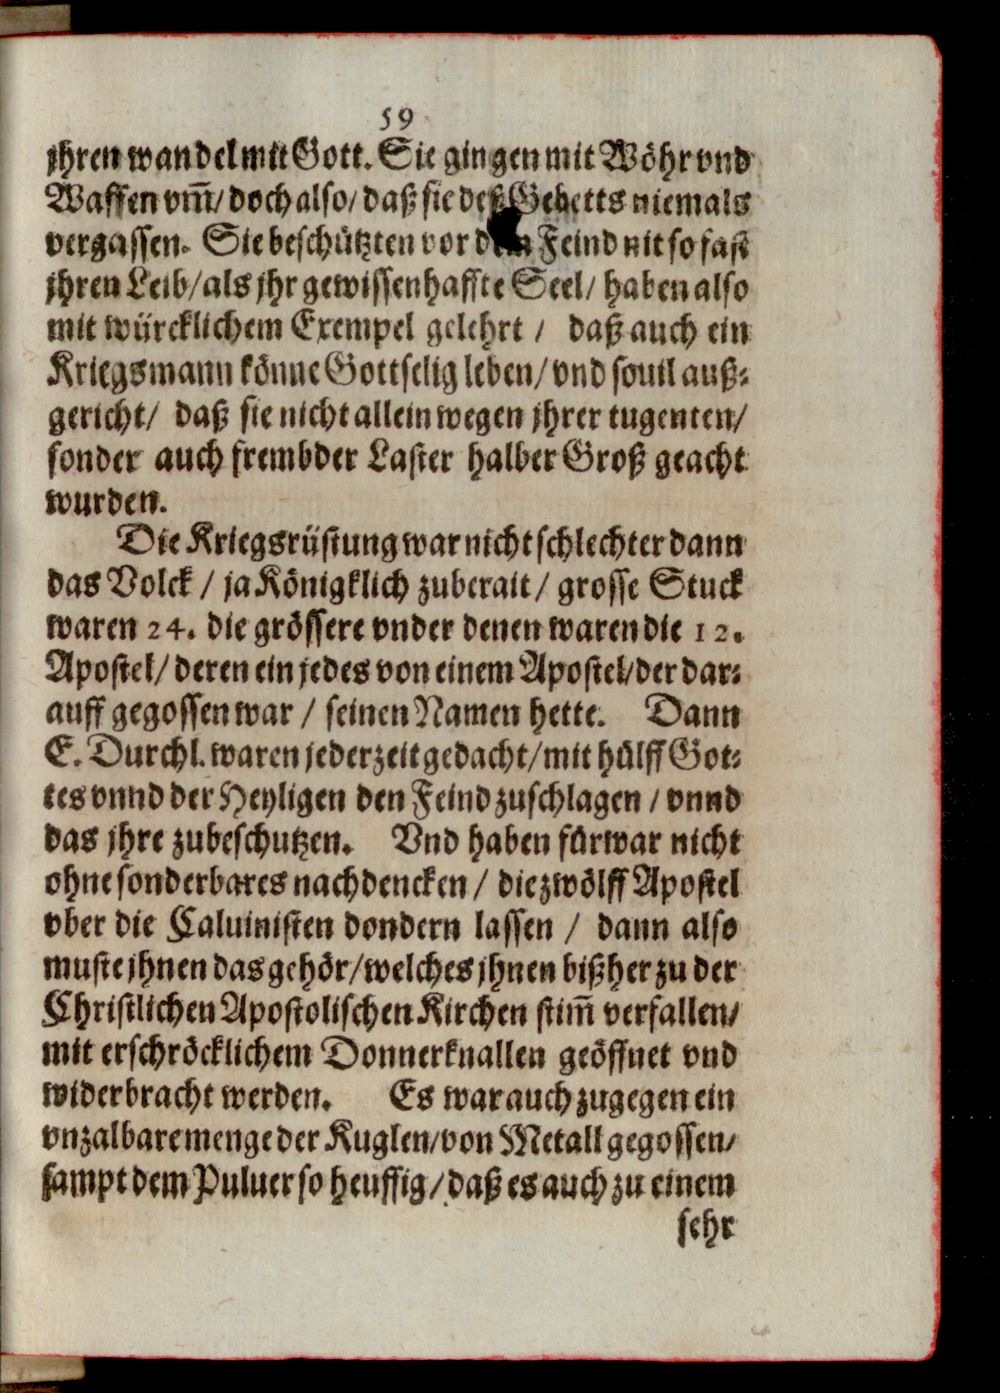 59
jhren wandel mit Gott. Sie gingen mit Wöhr vnd
Waffen vm̃/ doch also/ daß sie deß Gebetts niemals
vergassen. Sie beschützten vor dem Feind nit so fast
jhren Leib/ als jhr gewissenhaffte Seel/ haben also
mit würcklichem Exempel gelehrt / daß auch ein
Kriegsmann könne Gottselig leben/ vnd souil auß-
gericht/ daß sie nicht allein wegen jhrer tugenten/
sonder auch frembder Laster halber Groß geacht
wurden.
Die Kriegsrüstung war nicht schlechter dann
das Volck / ja Königklich zuberait / grosse Stuck
waren 24. die grössere vnder denen waren die 12.
Apostel/ deren ein jedes von einem Apostel/ der dar-
auff gegossen war / seinen Namen hette. Dann
E. Durchl. waren jederzeit gedacht/ mit hülff Got-
tes vnnd der Heyligen den Feind zuschlagen / vnnd
das jhre zubeschutzen. Vnd haben fürwar nicht
ohne sonderbares nachdencken / die zwölff Apostel
vber die Caluinisten dondern lassen / dann also
muste jhnen das gehör/ welches jhnen bißher zu der
Christlichen Apostolischen Kirchen stim̃ verfallen/
mit erschröcklichem Donnerknallen geöffnet vnd
widerbracht werden. Es war auch zugegen ein
vnzalbare menge der Kuglen/ von Metall gegossen/
sampt dem Puluer so heuffig/ daß es auch zu einem
sehr